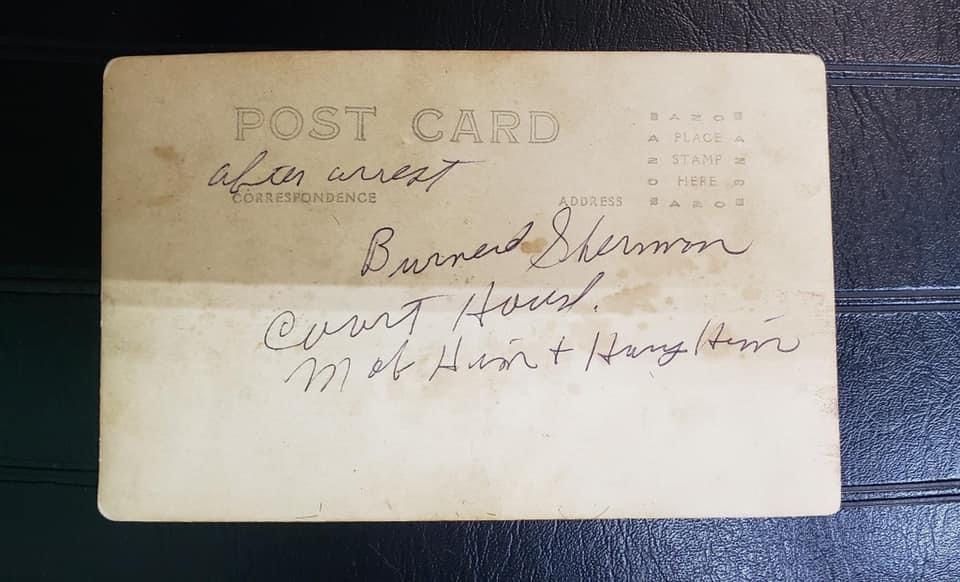 POST CARD
AZO
A PLACE A
Z STAMP Z
O HERE O
AZO
after arrest
CORRESPONDENCE
ADDRESS
Burned Sherman
Court House.
Mob Him + Hung Him